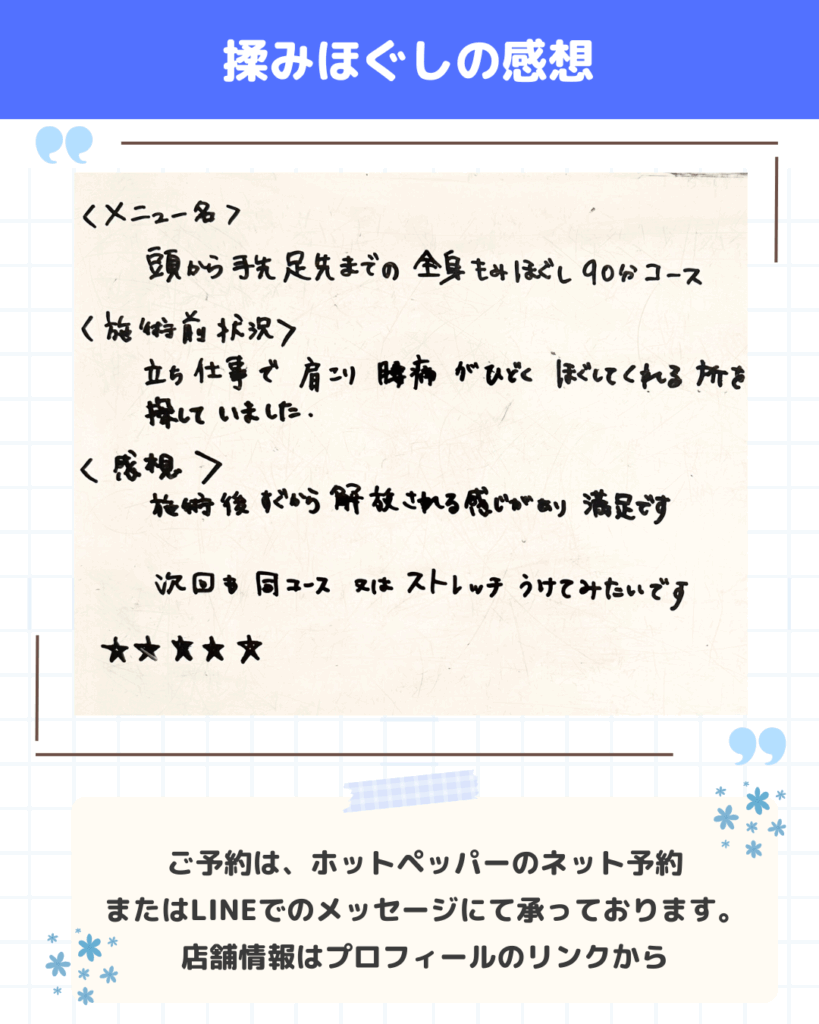 揉みほぐしの感想
<メニュー名>
頭から手先足先までの 全身もみほぐし 90分コース
<施術前状況>
立ち仕事で 肩こり 腰痛 がひどく ほぐしてくれる 所を
探して いました.
<感想>
施術後 すぐから 解放される感じがあり 満足です
次回も 同コース 又は ストレッチ うけてみたいです
★★★★★
ご予約は、ホットペッパーのネット予約
またはLINEでのメッセージにて承っております。
店舗情報はプロフィールのリンクから